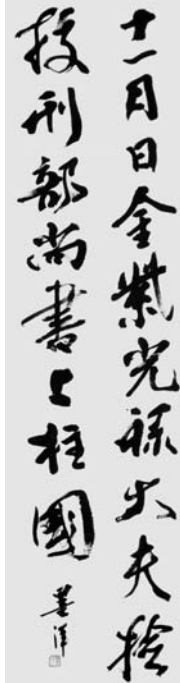 十一月日金紫光禄大夫撿
挍刑部尚書上柱國